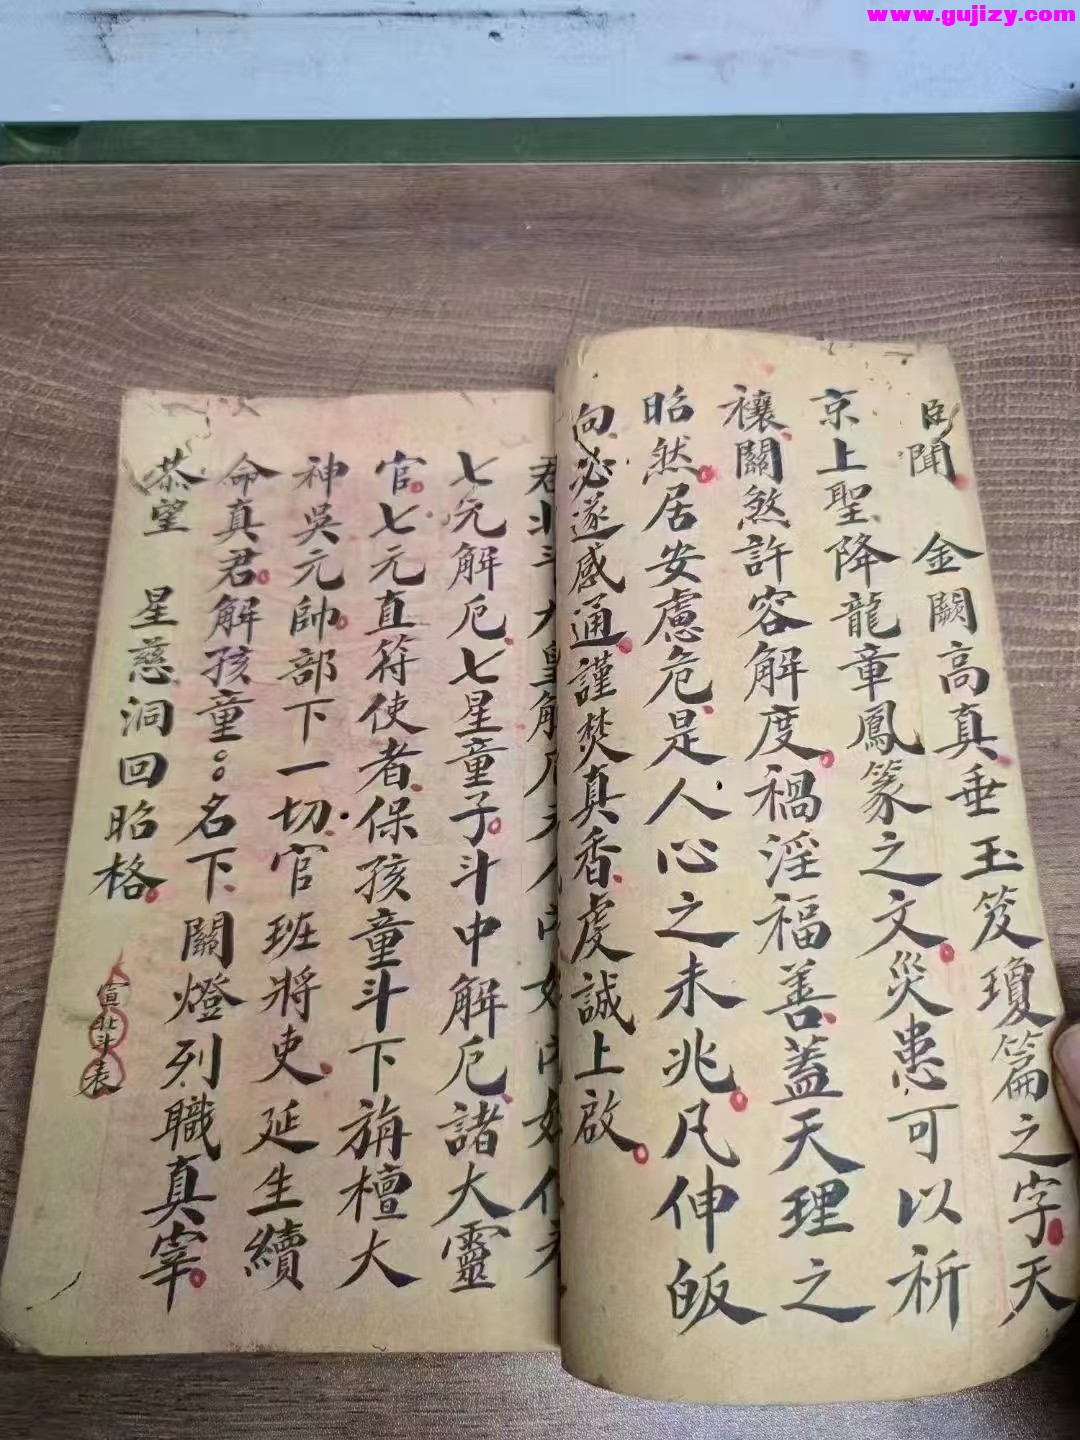 www.gujizy.com
臣聞 金闕高真垂玉笈瓊篇之字天
京上聖降龍章鳳篆之文災患可以祈
禳關煞許容解度禍淫福善蓋天理之
昭然居安慮危是人心之未兆凡伸皈
向必遂感通謹焚真香虔誠上啟
君北斗
七元解厄七星童子斗中解厄諸大靈
官七元直符使者保孩童斗下旃檀大
神吳元帥部下一切官班將吏延生續
命真君解孩童名下關燈列職真宰
恭望 星慈洞回昭格
宣北斗表